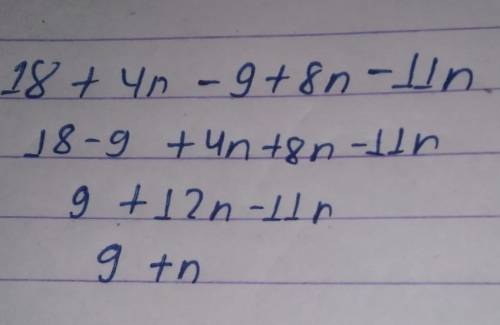 18 + 4n - 9 + 8n - 11n
18 - 9 + 4n + 8n - 11n
9 + 12n - 11n
9 + n